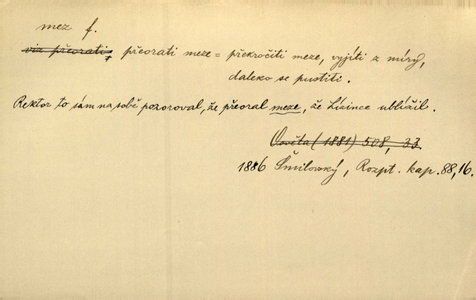 mez f.
viz přeorati, přeorati meze = překročiti meze, vyjíti z míry,
daleko se pustiti.
Rektor to sám na sobě pozoroval, že přeoral meze, že Lízince ublížil.
Osvěta (1881) 508, 33
1886 Šmilovský, Rozpt. kap. 88, 16.